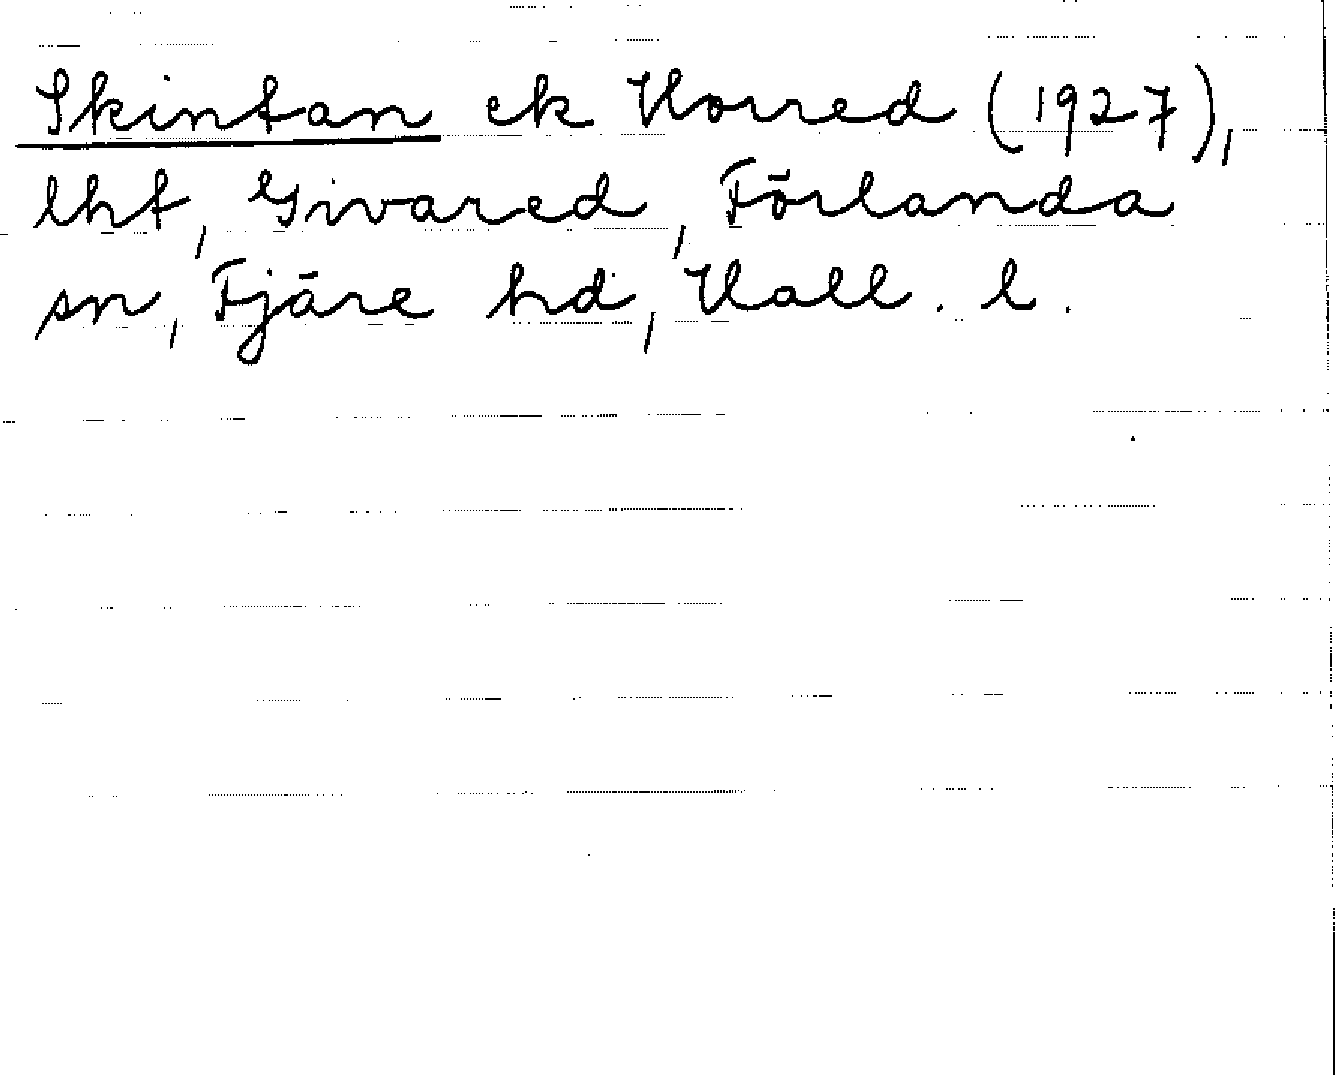 Skintan ek Horred (1927),
lht, Givared, Förlanda
sn, Fjäre hd, Hall. l.